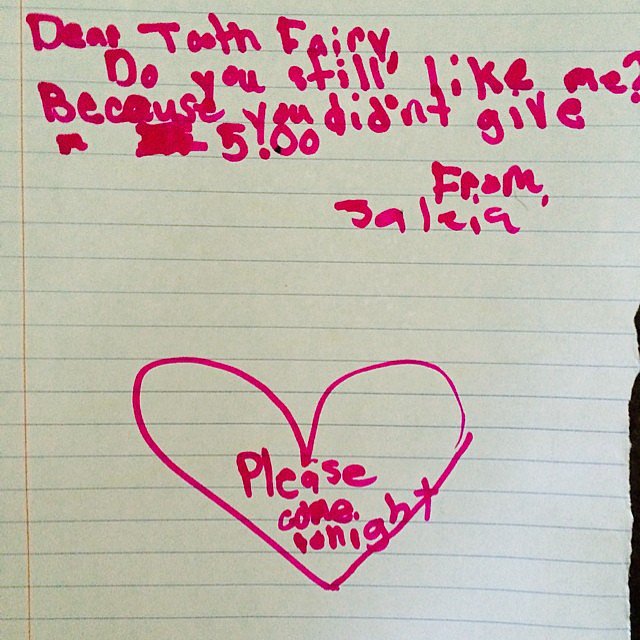 Dear Tooth Fairy,
Do you still like me?
Because you didn't give
m 5.00
From,
Jaleia
Please
come
tonight